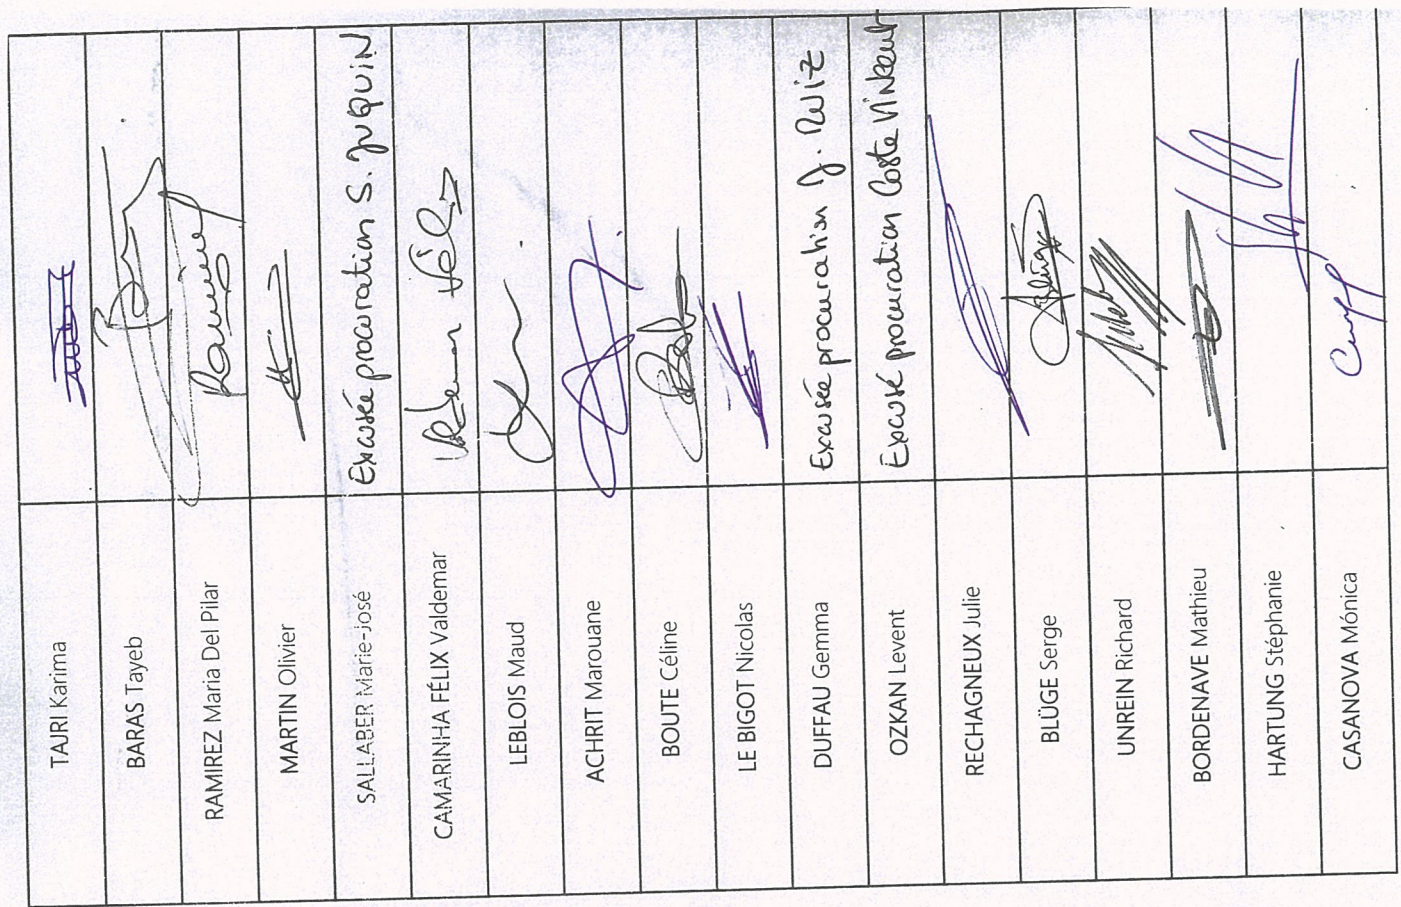 TAJRI Karima
BARAS Tayeb
RAMIREZ Maria Del Pilar
Ramirez
MARTIN Olivier
SALLABER Marie-José
Excusée procuration S. JUQUIN
CAMARINHA FÉLIX Valdemar
LEBLOIS Maud
ACHRIT Marouane
BOUTE Céline
LE BIGOT Nicolas
DUFFAU Gemma
Excusée procuration J. Ruiz
OZKAN Levent
Excusé procuration Coste Vinkent
RECHAGNEUX Julie
BLÜGE Serge
UNREIN Richard
BORDENAVE Mathieu
HARTUNG Stéphanie
CASANOVA Mónica